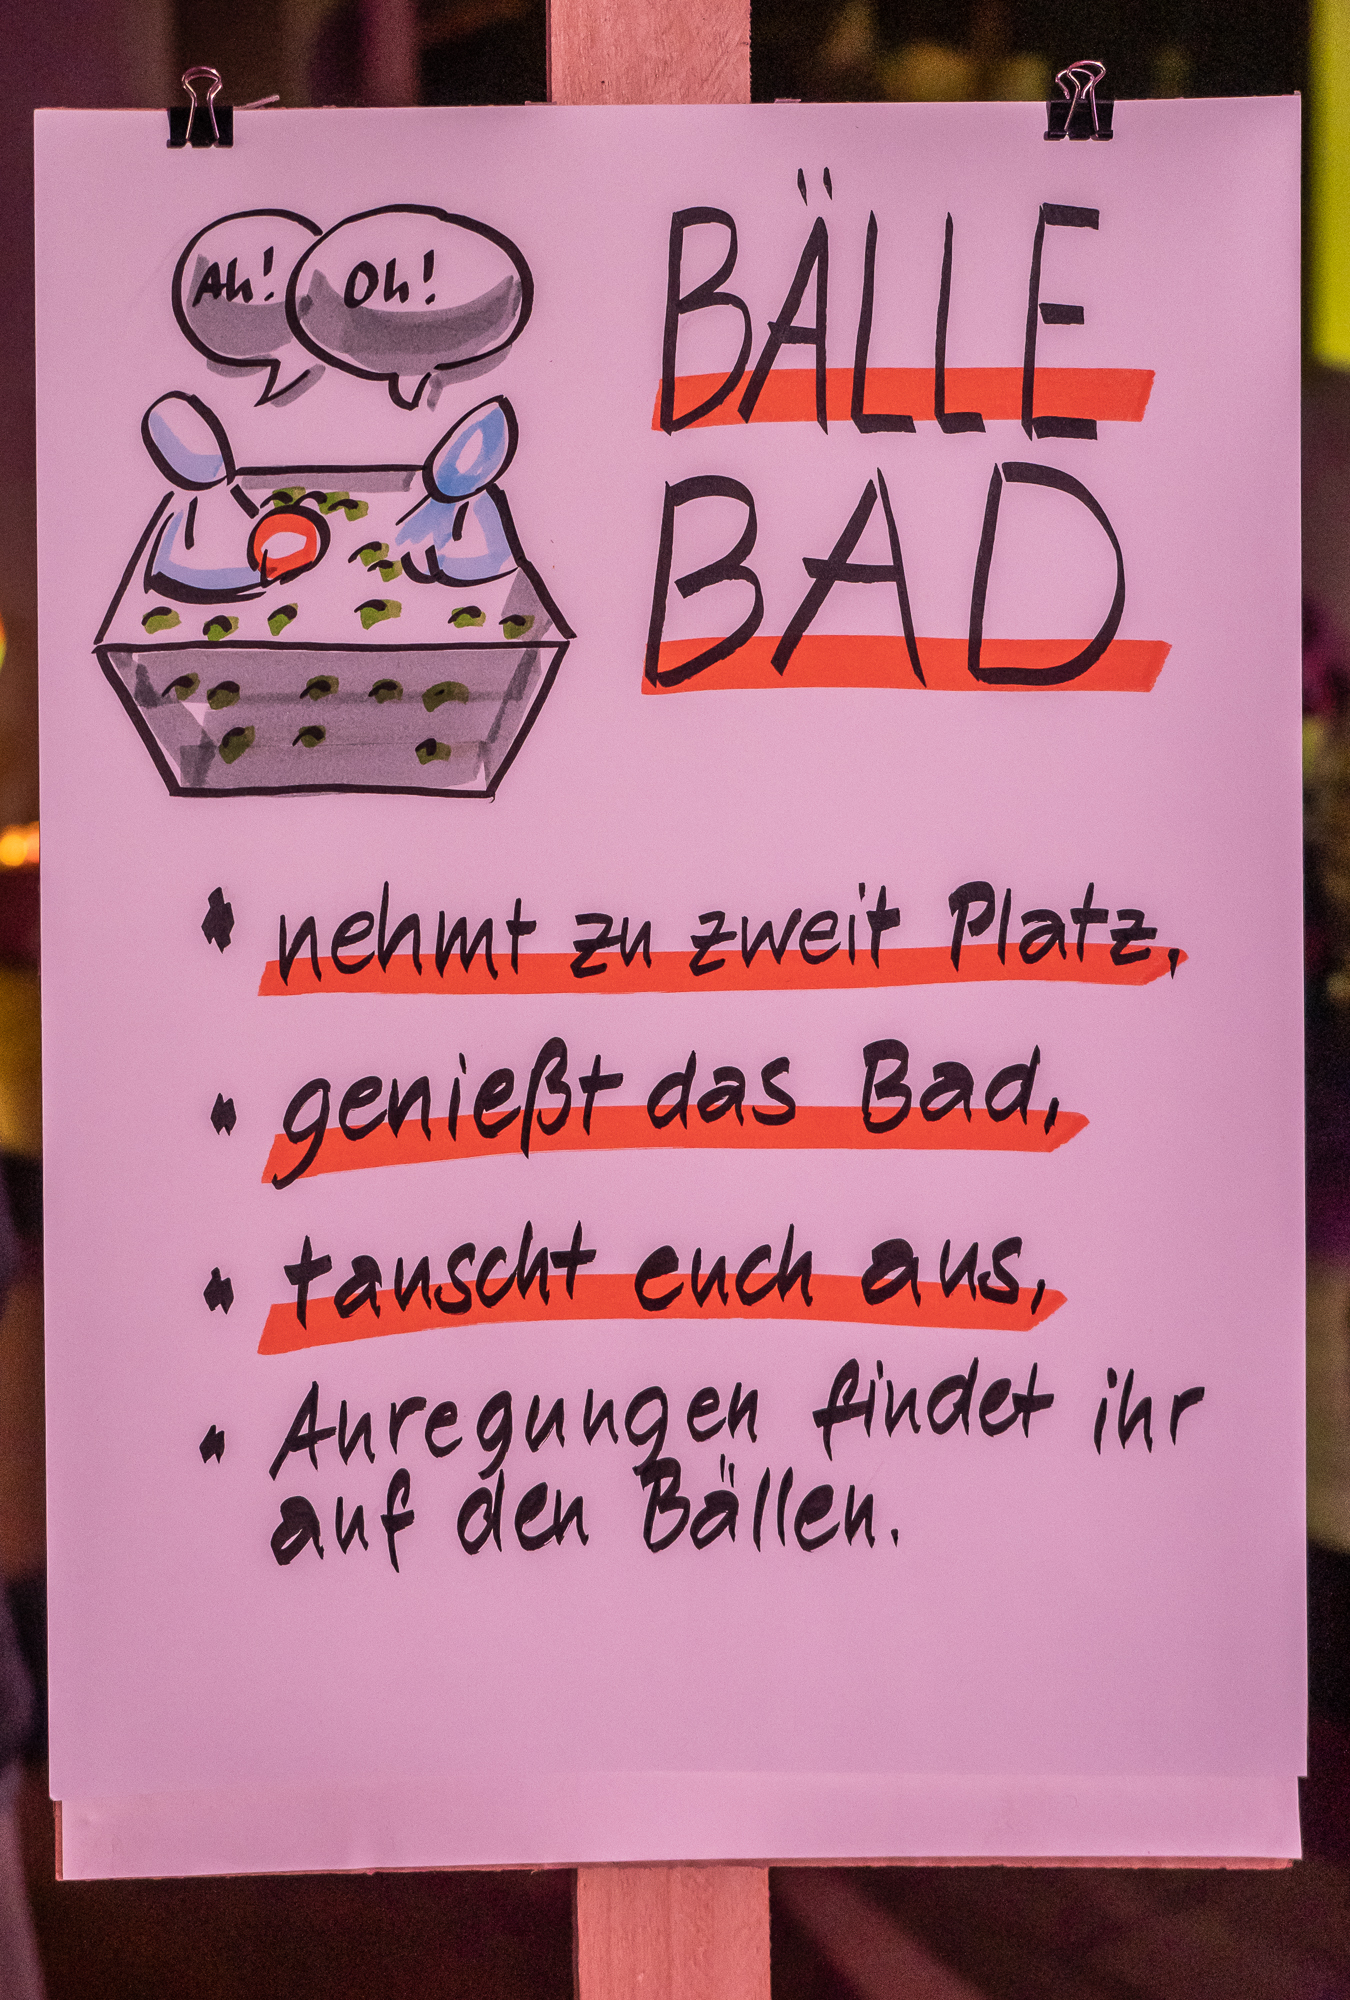 Ah! Oh!
BÄLLE
BAD
• nehmt zu zweit Platz,
• genießt das Bad,
• tauscht euch aus,
• Anregungen findet ihr
auf den Bällen.